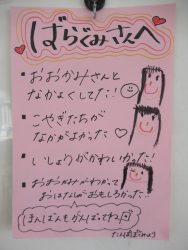 ばらぐみさんへ
・おおかみさんと
なかよくしてた!
・こやぎたちが
なかがよかった♡
・いしょうがかわいかった!
・おおおかみがわかって
おはなしがおもしろかった。
ほんばんもがんばってね
たんぽぽぐみより